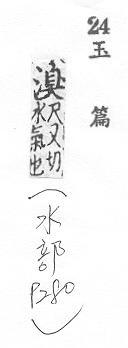 24 玉篇
溴尺又切
水氣也
（水部P280）